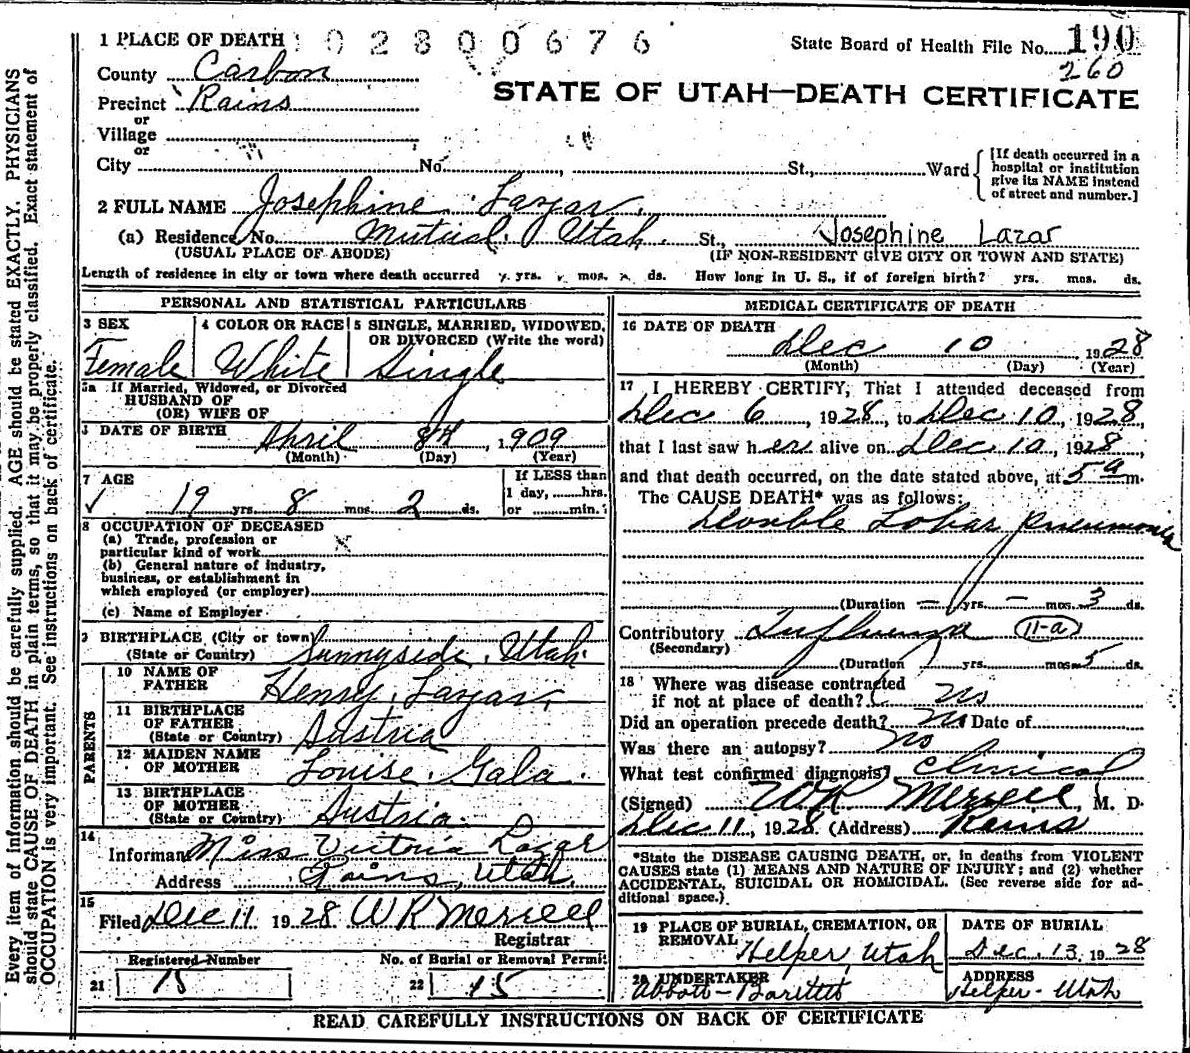 1 PLACE OF DEATH 102800676
State Board of Health File No. 190
260
County Carbon
STATE OF UTAH—DEATH CERTIFICATE
Precinct Rains
or
Village
or
City No. St., Ward
[If death occurred in a hospital or institution give its NAME instead of street and number.]
2 FULL NAME Josephine Lazar
(a) Residence No. Mutual, Utah. St., Josephine Lazar
(USUAL PLACE OF ABODE) (IF NON-RESIDENT GIVE CITY OR TOWN AND STATE)
Length of residence in city or town where death occurred yrs. mos. ds. How long in U. S., if of foreign birth? yrs. mos. ds.
PERSONAL AND STATISTICAL PARTICULARS
3 SEX 4 COLOR OR RACE 5 SINGLE, MARRIED, WIDOWED,
OR DIVORCED (Write the word)
Female White Single
5a If Married, Widowed, or Divorced
HUSBAND OF
(OR) WIFE OF
DATE OF BIRTH April 8th 1909
(Month) (Day) (Year)
7 AGE If LESS than
19 yrs. 8 mos. 2 ds. 1 day, hrs.
or min.
8 OCCUPATION OF DECEASED
(a) Trade, profession or
particular kind of work x
(b) General nature of industry,
business, or establishment in
which employed (or employer)
(c) Name of Employer
9 BIRTHPLACE (City or town)
(State or Country) Sunnyside, Utah.
PARENTS
10 NAME OF
FATHER Henry Lazar
11 BIRTHPLACE
OF FATHER
(State or Country) Austria
12 MAIDEN NAME
OF MOTHER Louise Gala
13 BIRTHPLACE
OF MOTHER
(State or Country) Austria
14
Informant Miss Victoria Lazar
Address Rains, Utah.
15
Filed Dec 11 1928 W R Merrell
Registrar
Registered Number No. of Burial or Removal Permit
21 15 22 15
MEDICAL CERTIFICATE OF DEATH
16 DATE OF DEATH
Dec 10 1928
(Month) (Day) (Year)
17 I HEREBY CERTIFY, That I attended deceased from
Dec 6, 1928, to Dec 10, 1928,
that I last saw her alive on Dec 10, 1928,
and that death occurred, on the date stated above, at 5 a m.
The CAUSE DEATH* was as follows:
Double Lobar Pneumonia
(Duration — yrs. — mos. 3 ds.
Contributory Influenza 11-a
(Secondary)
(Duration) yrs. mos. 5 ds.
18 Where was disease contracted
if not at place of death? no
Did an operation precede death? no Date of
Was there an autopsy? no
What test confirmed diagnosis? Clinical
(Signed) W R Merrell, M. D.
Dec 11, 1928 (Address) Rains
*State the DISEASE CAUSING DEATH, or, in deaths from VIOLENT
CAUSES state (1) MEANS AND NATURE OF INJURY; and (2) whether
ACCIDENTAL, SUICIDAL OR HOMICIDAL. (See reverse side for ad-
ditional space.)
19 PLACE OF BURIAL, CREMATION, OR
REMOVAL Helper, Utah
DATE OF BURIAL
Dec. 13 1928
20 UNDERTAKER
ADDRESS
Helper - Utah
READ CAREFULLY INSTRUCTIONS ON BACK OF CERTIFICATE
Every item of information should be carefully supplied. AGE should be stated EXACTLY. PHYSICIANS
should state CAUSE OF DEATH in plain terms, so that it may be properly classified. Exact statement of
OCCUPATION is very important. See instructions on back of certificate.